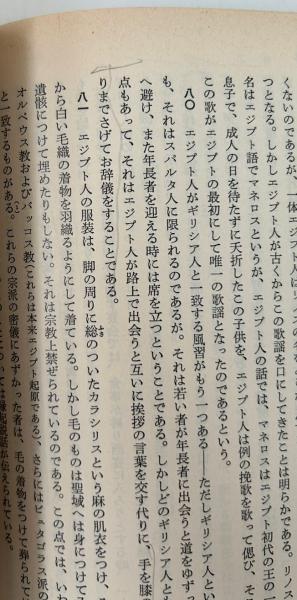 くないのであるが、一体エジプト人は
つとなる。しかしエジプト人が古くからこの歌謡を口にしてきたことは明らかである。リノス
名はエジプト語でマネロスというが、エジプト人の話では、マネロスはエジプト初代の王の
息子で、成人の日を待たずに夭折したこの子供を、エジプト人は例の挽歌を歌って偲び、そ
この歌がエジプトの最初にして唯一の歌謡となったのであるという。
八〇 エジプト人がギリシア人と一致する風習がもう一つある――ただしギリシア人とい
も、それはスパルタ人に限られるのであるが。それは若い者が年長者に出会うと道をゆず
へ避け、また年長者を迎える時には席を立つということである。しかしどのギリシア人と
点もあって、エジプト人が路上で出会うと互いに挨拶の言葉を交す代りに、手を膝の
りまでさげてお辞儀をすることである。
八一 エジプト人の服装は、脚の周りに総のついたカラシリスという麻の肌衣をつけ、
ふさ
から白い毛織の着物を羽織るようにして着ている。しかし毛のものは聖域へは身につけて
遺骸につけて埋めたりもしない。それは宗教上禁ぜられているのである。この点では、いわ
オルペウス教およびバッコス教(これらは本来エジプト起原である)、さらにはピュタゴラス派の
と一致するものである。これらの宗派の密儀にあずかった者は、毛の着物をつけて葬られて
縁起話が伝えられている。